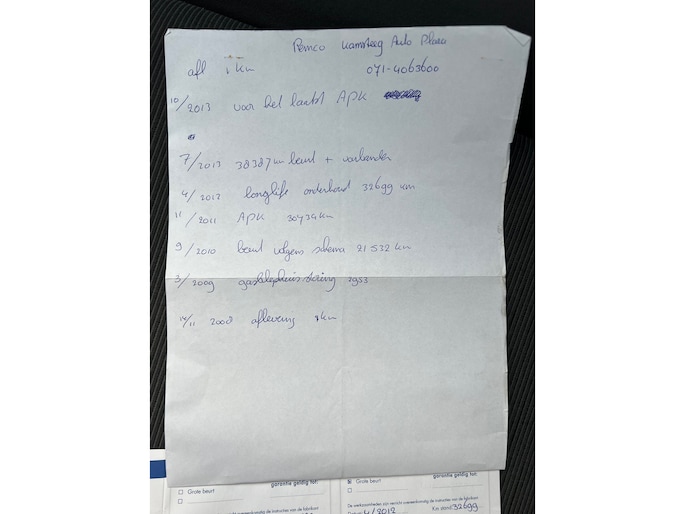 Remco Kamsteeg Auto Plaza
afl 1 km 071-4063600
10/2013 voor het laatst APK
7/2013 38387 km beurt + voorbanden
4/2012 longlife onderhoud 32699 km
11/2011 APK 30434 km
9/2010 beurt volgens schema 21532 km
3/2009 gasklephuis storing 2953
14/11 2008 aflevering 1 km
garantie geldig tot:
garantie geldig tot:
Grote beurt
Grote beurt
De werkzaamheden zijn verricht overeenkomstig de instructies van de fabrikant
4/2012 Km stand: 32699